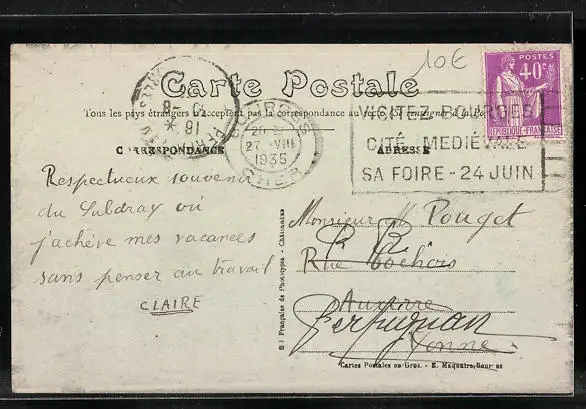 10€
POSTES
40c
REPUBLIQUE-FRANÇAISE
Carte Postale
Tous les pays étrangers n'acceptent pas la correspondance au recto. (Se renseigner à la Poste)
CORRESPONDANCE
ADRESSE
BOURGES
27 VIII
1935
CHER
VISITEZ BOURGES
CITÉ MEDIÉVALE
SA FOIRE - 24 JUIN
Respectueux souvenir
du Subdray où
j'achève mes vacances
sans penser au travail
CLAIRE
Monsieur Pouget
Rue Cochois
Auxerre
Perpignan
Yonne
Sté Française de Phototypie - Châteaudun
Cartes Postales en Gros. - E. Maquaire, Bourges